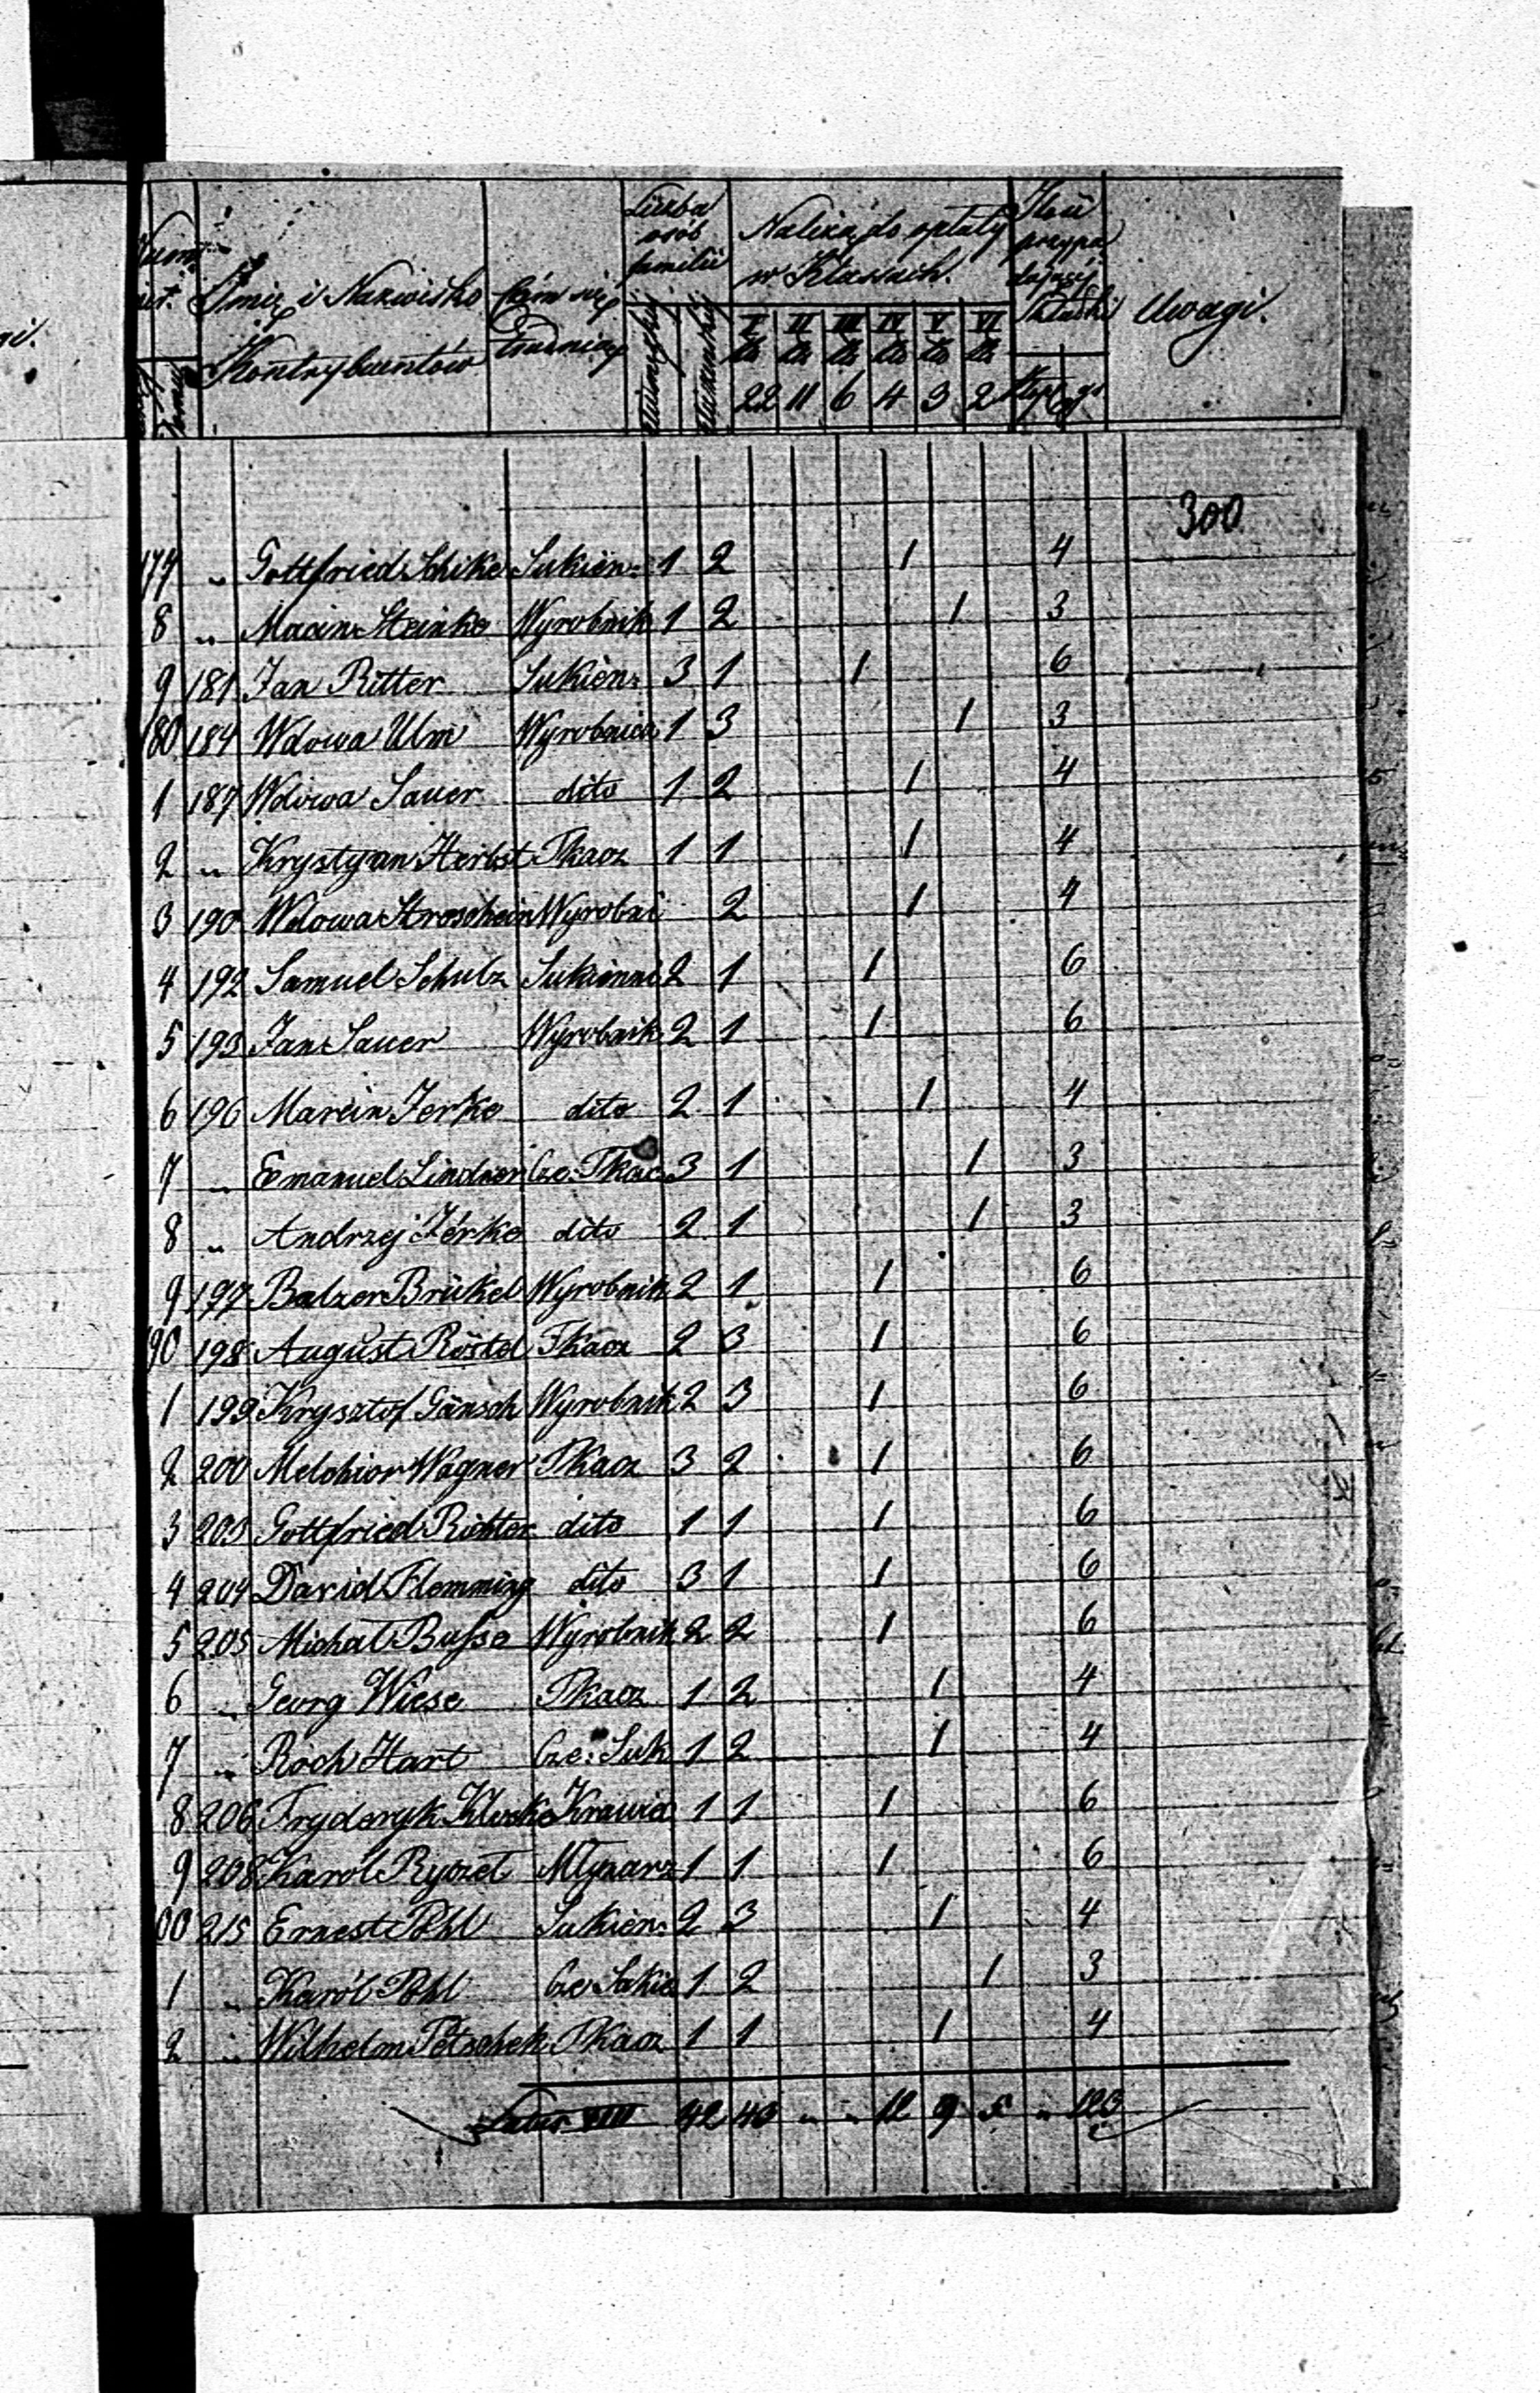 gi.
Imię i Nazwisko Kontrybuentów
Czém się trudnią
Liczba osób familii
Należą do opłaty w Klassach.
Uwagi.
I II III IV V VI
22 11 6 4 3 2
300
177 „ Gottfried Schike Sukien: 1 2 1 4
8 „ Macin Steinke Wyrobnik 1 2 1 3
9 181 Jan Ritter Sukien: 3 1 1 6
180 184 Wdowa Ulm Wyrobnica 1 3 1 3
1 187 Wdowa Sauer dito 1 2 1 4
2 „ Krystyan Herbst Tkacz 1 1 1 4
3 190 Wdowa Stroschein Wyrobni 2 1 4
4 192 Samuel Schulz Sukienni 2 1 1 6
5 193 Jan Sauer Wyrobnik 2 1 1 6
6 196 Marcin Jerke dito 2 1 1 4
7 „ Emanuel Lindner Cze: Tkac 3 1 1 3
8 „ Andrzej Jerke dito 2 1 1 3
9 197 Balzer Brükel Wyrobnik 2 1 1 6
190 198 August Röstel Tkacz 2 3 1 6
1 199 Krysztof Gänsch Wyrobnik 2 3 1 6
2 200 Melchior Wagner Tkacz 3 2 1 6
3 203 Gottfried Richter dito 1 1 1 6
4 204 David Flemming dito 3 1 1 6
5 205 Michał Busse Wyrobnik 2 2 1 6
6 „ Georg Wiese Tkacz 1 2 1 4
7 „ Roch Hart Cze: Suk 1 2 1 4
8 206 Fryderyk Kloske Krawiec 1 1 1 6
9 208 Karol Ryszel Młynarz 1 1 1 6
00 215 Ernest Pohl Sukien: 2 3 1 4
1 „ Karól Pohl Cze Sukie 1 2 1 3
2 „ Wilhelm Petzschek Tkacz 1 1 1 4
Latus VIII 42 43 „ „ 12 9 5 „ 123